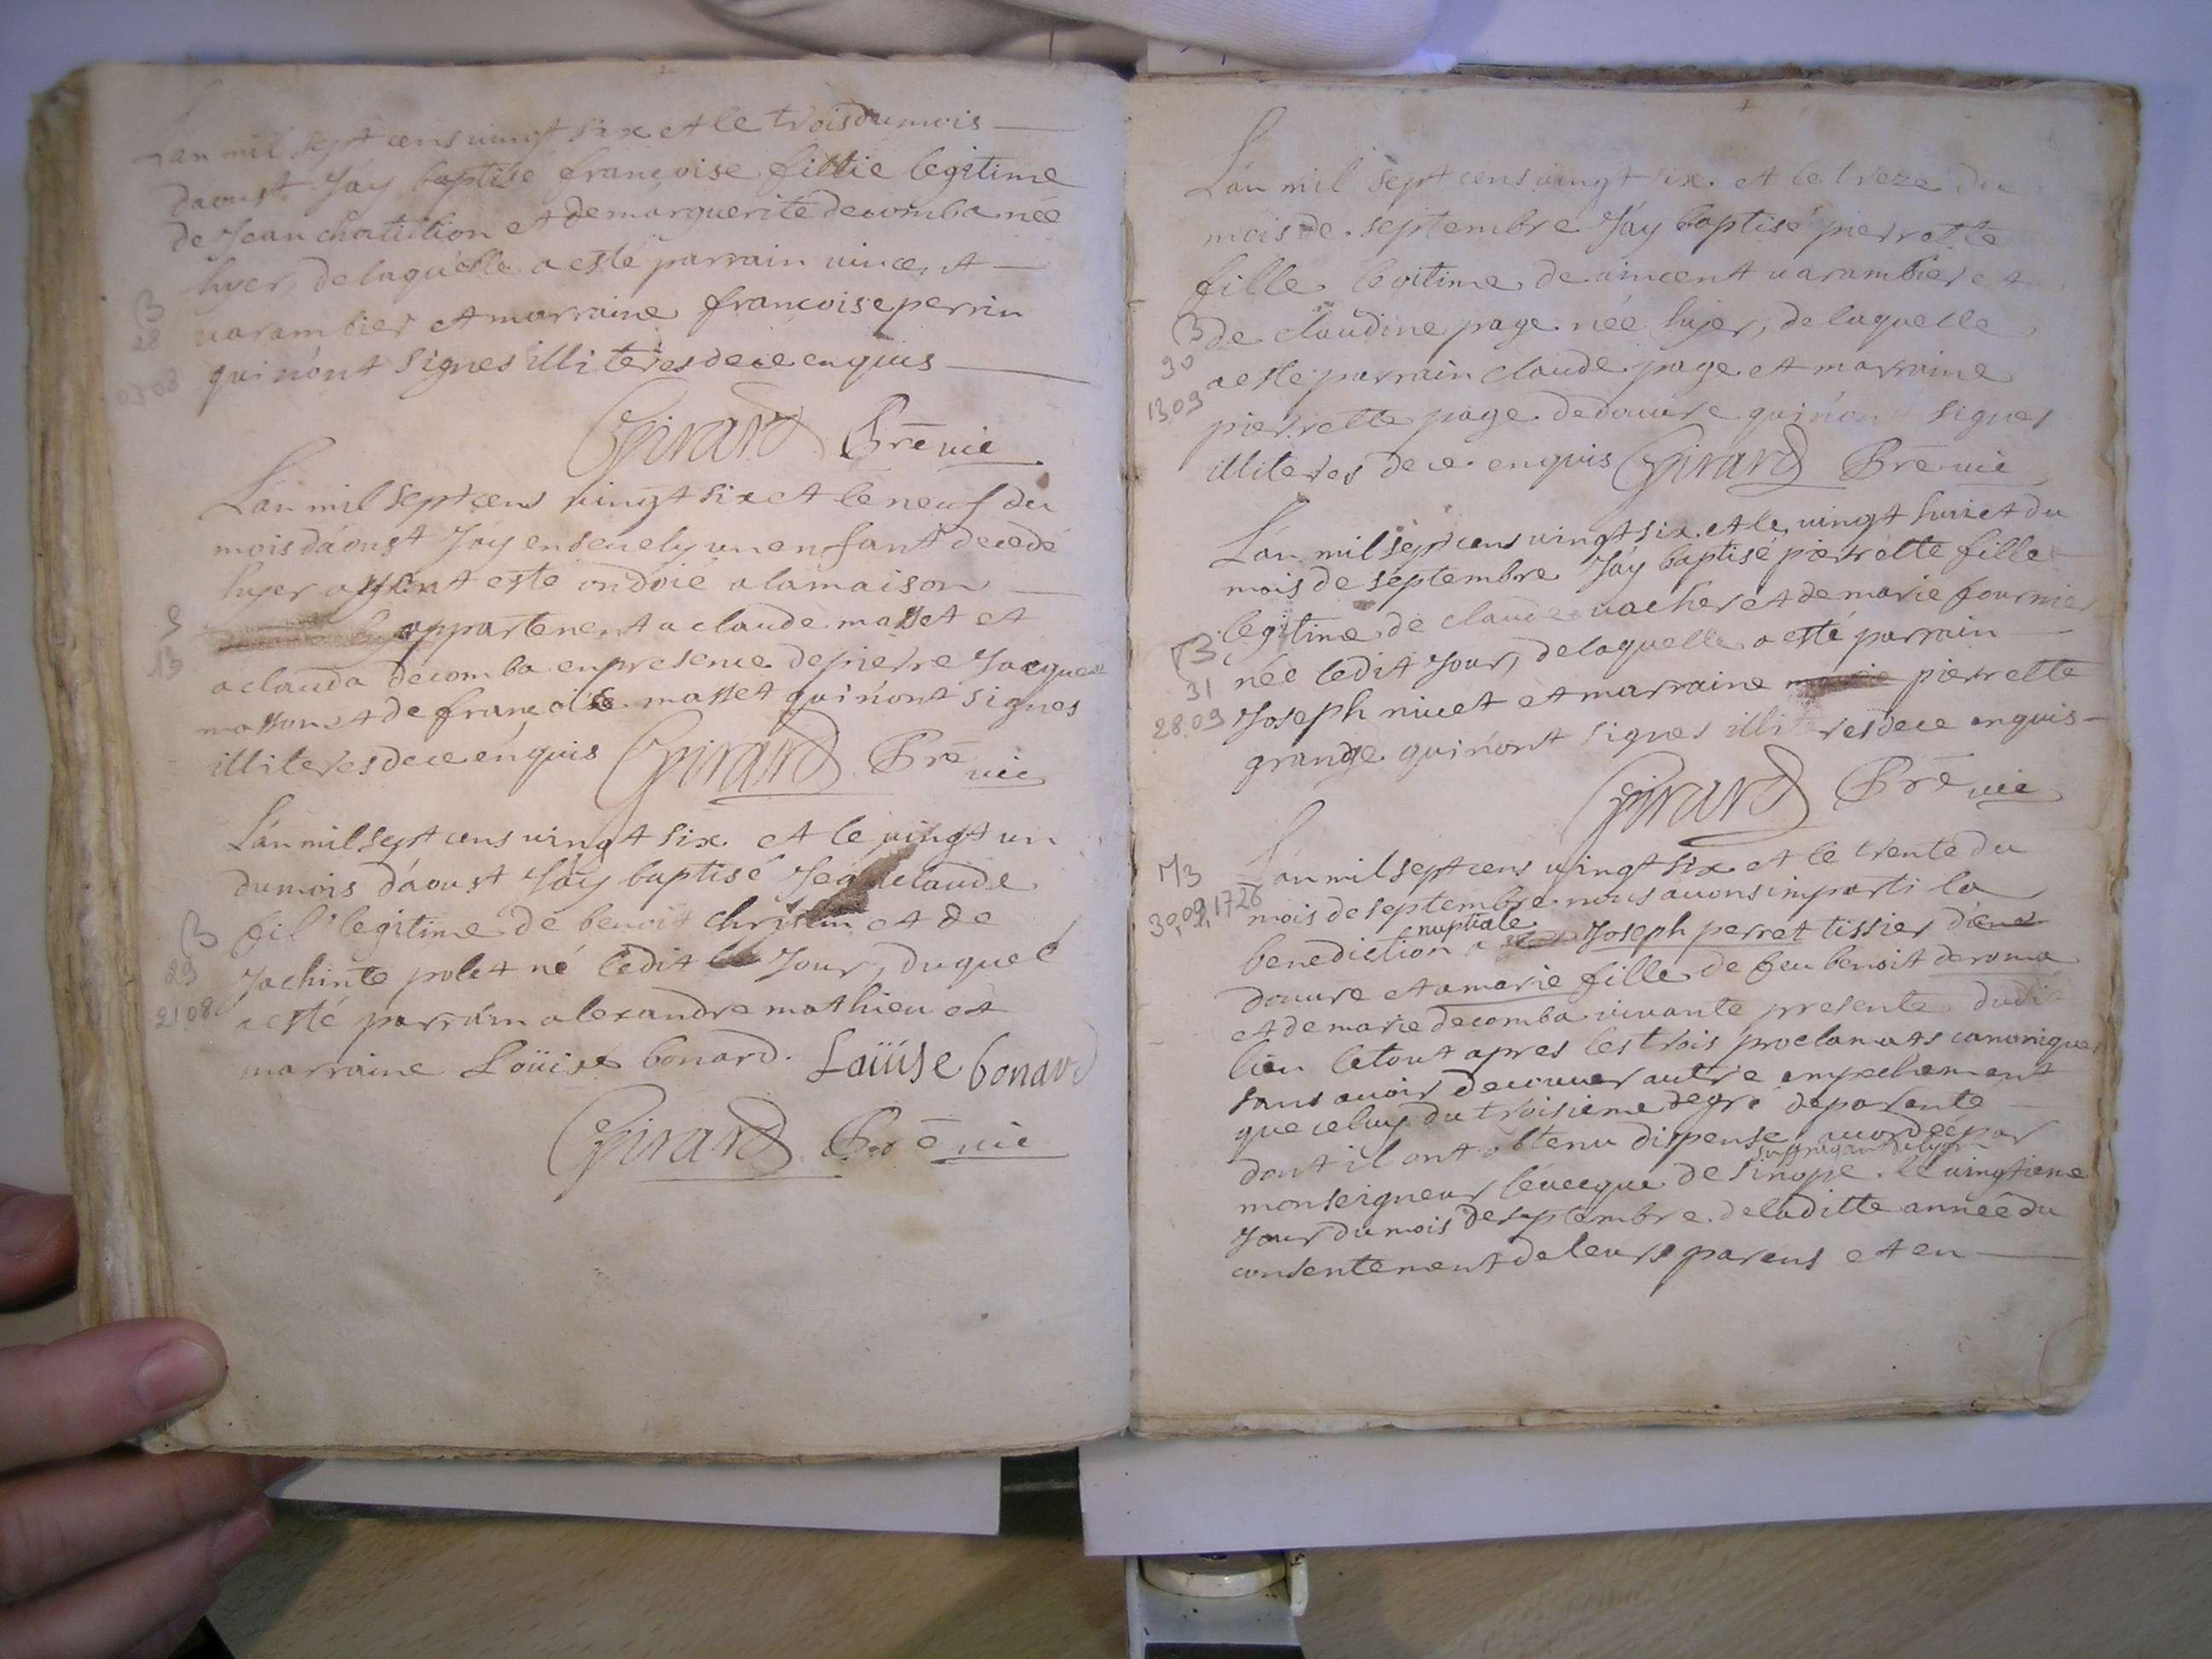 L'an mil sept cens vingt six et le trois du mois
d'aoust J'ay baptisé françoise fillie legitime
de Jean chatillion et de marguerite decomba née
hyer, de laquelle a esté parrain vincent
B
28
03 08
varambier et marraine françoise perrin
qui n'ont signes illiteres de ce enquis
Girard Bre vic
L'an mil sept cens vingt six et le neuf du
mois d'aoust J'ay ensevely un enfant decedé
hyer ayant esté ondoié a la maison
S
13
appartenent a claude masset et
a clauda decomba en presence de pierre Jacques
masson et de françoise masset qui n'ont signes
illiteres de ce enquis Girard Pre vic
L'an mil sept cens vingt six et le vingt un
du mois d'aoust J'ay baptisé Jean claude
fil legitime de benoit christin et de
B
29
21 08
Jachinte polet né ledit Jour, duquel
a esté parrain alexandre mathieu et
marraine Loüise bonard. Loüise bonard
Girard Pre vic
L'an mil sept cens vingt six et le treze du
mois de septembre J'ay baptisé pierrette
fille legitime de vincent varambier et
B
30
13 09
de claudine page née hyer, de laquelle
a esté parrain claude page et marraine
pierrette page dedouvre qui n'ont signes
illiteres de ce enquis Girard Pre vic
L'an mil sept cens vingt six et le vingt huict du
mois de septembre J'ay baptisé pierrette fille
legitime de claude vacher et de marie fournier
B
31
28.09
née ledit Jour, de laquelle a esté parrain
Joseph nivet et marraine marie pierrette
grange qui n'ont signes illiteres de ce enquis
Girard Pre vic
M3
30,09,1726
L'an mil sept cens vingt six et le trente du
mois de septembre nous avons imparti la
nuptiale
benediction a Joseph perret tissier
douvre et a marie fille de feu benoit deroma
et de marie decomba vivante presente dudit
lieu le tout apres les trois proclamats canoniques
sans avoir decouver autre empechement
que celuy du troisieme degré de parenté
dont il ont obtenu dispense, accordée par
suffragant de lyon
monseigneur l'evecque de sinope le vingtieme
Jour du mois de septembre de laditte année du
consentement de leurs parens et en